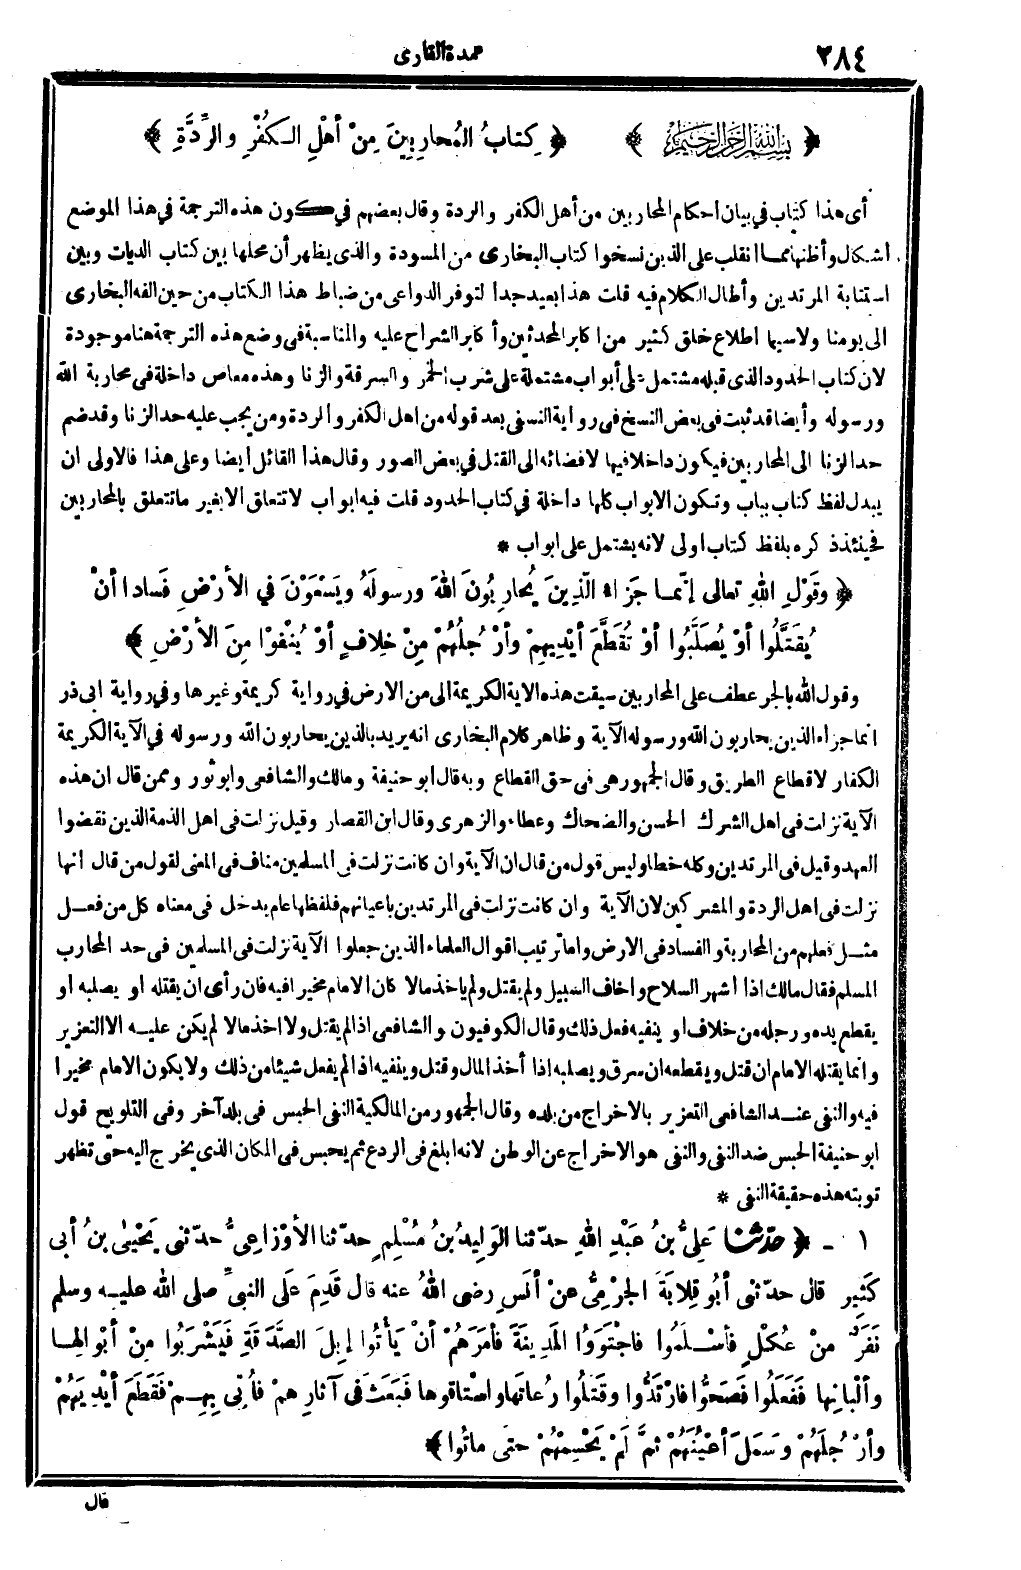 ٢٨٤
عمدة القارى
﴿ بسم الله الرحمن الرحيم ﴾ ﴿ كِتابُ المُحارِبِينَ مِنْ أهْلِ الكُفْرِ والرِّدَّةِ ﴾
أى هذا كتاب فى بيان أحكام المحاربين من أهل الكفر والردة وقال بعضهم فى كون هذه الترجمة فى هذا الموضع
أشكال وأظنها مما انقلب على الذين نسخوا كتاب البخارى من المسودة والذى يظهر أن محلها بين كتاب الديات وبين
استتابة المرتدين وأطال الكلام فيه قلت هذا بعيد جدا لتوفر الدواعى من ضباط هذا الكتاب من حين الفه البخارى
الى يومنا ولاسيما اطلاع خلق كثير من اكابر المحدثين وأكابر الشراح عليه والمناسبة فى وضع هذه الترجمة هنا موجودة
لان كتاب الحدود الذى قبله مشتمل على أبواب مشتملة على شرب الخمر والسرقة والزنا وهذه معاص داخلة فى محاربة الله
ورسوله وأيضا قد ثبت فى بعض النسخ فى رواية النسفى بعد قوله من اهل الكفر والردة ومن يجب عليه حد الزنا وقد ضم
حد الزنا الى المحاربين فيكون داخلا فيها لافضائه الى القتل فى بعض الصور وقال هذا القائل أيضا وعلى هذا فالاولى ان
يبدل لفظ كتاب بباب وتكون الابواب كلها داخلة فى كتاب الحدود قلت فيه ابواب لاتتعلق الابغير ماتتعلق بالمحاربين
فحينئذ ذكره بلفظ كتاب اولى لانه يشتمل على ابواب *
﴿ وقَوْلِ اللهِ تعالى إنَّما جَزَاءُ الَّذِينَ يُحارِبُونَ اللهَ ورسولَهُ ويَسْعَوْنَ فِي الأرْضِ فَسادا أنْ
يُقَتَّلُوا أوْ يُصَلَّبُوا أوْ تُقَطَّعَ أيْدِيهِمْ وأرْجُلُهُمْ مِنْ خِلافٍ أوْ يُنْفَوْا مِنَ الأرْضِ ﴾
وقول الله بالجر عطف على المحاربين سيقت هذه الاية الكريمة الى من الارض فى رواية كريمة وغيرها وفى رواية ابى ذر
انما جزاء الذين يحاربون الله ورسوله الآية وظاهر كلام البخارى انه يريد بالذين يحاربون الله ورسوله فى الآية الكريمة
الكفار لاقطاع الطريق وقال الجمهور هى فى حق القطاع وبه قال ابو حنيفة ومالك والشافعى وابو ثور وممن قال ان هذه
الآية نزلت فى اهل الشرك الحسن والضحاك وعطاء والزهرى وقال ابن القصار وقيل نزلت فى اهل الذمة الذين نقضوا
العهد وقيل فى المرتدين وكله خطا وليس قول من قال ان الآية وان كانت نزلت فى المسلمين مناف فى المعنى لقول من قال أنها
نزلت فى اهل الردة والمشركين لان الآية وان كانت نزلت فى المرتدين باعيانهم فلفظها عام يدخل فى معناه كل من فعل
مثل فعلهم من المحاربة والفساد فى الارض واما ترتيب اقوال العلماء الذين جعلوا الآية نزلت فى المسلمين فى حد المحارب
المسلم فقال مالك اذا أشهر السلاح واخاف السبيل ولم يقتل ولم ياخذ مالا كان الامام مخيرا فيه فان رأى ان يقتله او يصلبه او
يقطع يده ورجله من خلاف او ينفيه فعل ذلك وقال الكوفيون والشافعى اذا لم يقتل ولا اخذ مالا لم يكن عليه الا التعزير
وانما يقتله الامام ان قتل ويقطعه ان سرق ويصلبه اذا أخذ المال وقتل وينفيه اذا لم يفعل شيئا من ذلك ولا يكون الامام مخيرا
فيه والنفى عند الشافعى التعزير بالاخراج من بلده وقال الجمهور من المالكية النفى الحبس فى بلد آخر وفى التلويح قول
ابو حنيفة الحبس ضد النفى والنفى هو الاخراج عن الوطن لانه ابلغ فى الردع ثم يحبس فى المكان الذى يخرج اليه حتى تظهر
توبته هذه حقيقة النفى *
١ - ﴿ حدّثنا عَلِىُّ بنُ عَبْدِ اللهِ حدّثنا الوَلِيدُ بنُ مُسْلِمٍ حدّثنا الأوْزاعِىُّ حدّثنى يَحْيَى بنُ أبى
كَثِيرٍ قال حدّثنى أبُو قِلابَةَ الجَرْمِىُّ عنْ أنَسٍ رضى اللهُ عنه قال قَدِمَ عَلَى النبىِّ صلى الله عليه وسلم
نَفَرٌ مِنْ عُكْلٍ فأسْلَمُوا فاجْتَوَوُا المَدِينَةَ فأمَرَهُمْ أنْ يَأْتُوا إبِلَ الصَّدَقَةِ فَيَشْرَبُوا مِنْ أبْوالِها
وألْبانِها فَفَعَلُوا فَصَحُّوا فارْتَدُّوا وقَتَلُوا رُعاتَها واسْتاقُوها فَبَعَثَ فى آثارِهِمْ فأُتِىَ بِهِمْ فَقَطَعَ أيْدِيَهُمْ
وأرْجُلَهُمْ وسَمَلَ أعْيُنَهُمْ ثُمَّ لَمْ يَحْسِمْهُمْ حتى ماتُوا ﴾
قال